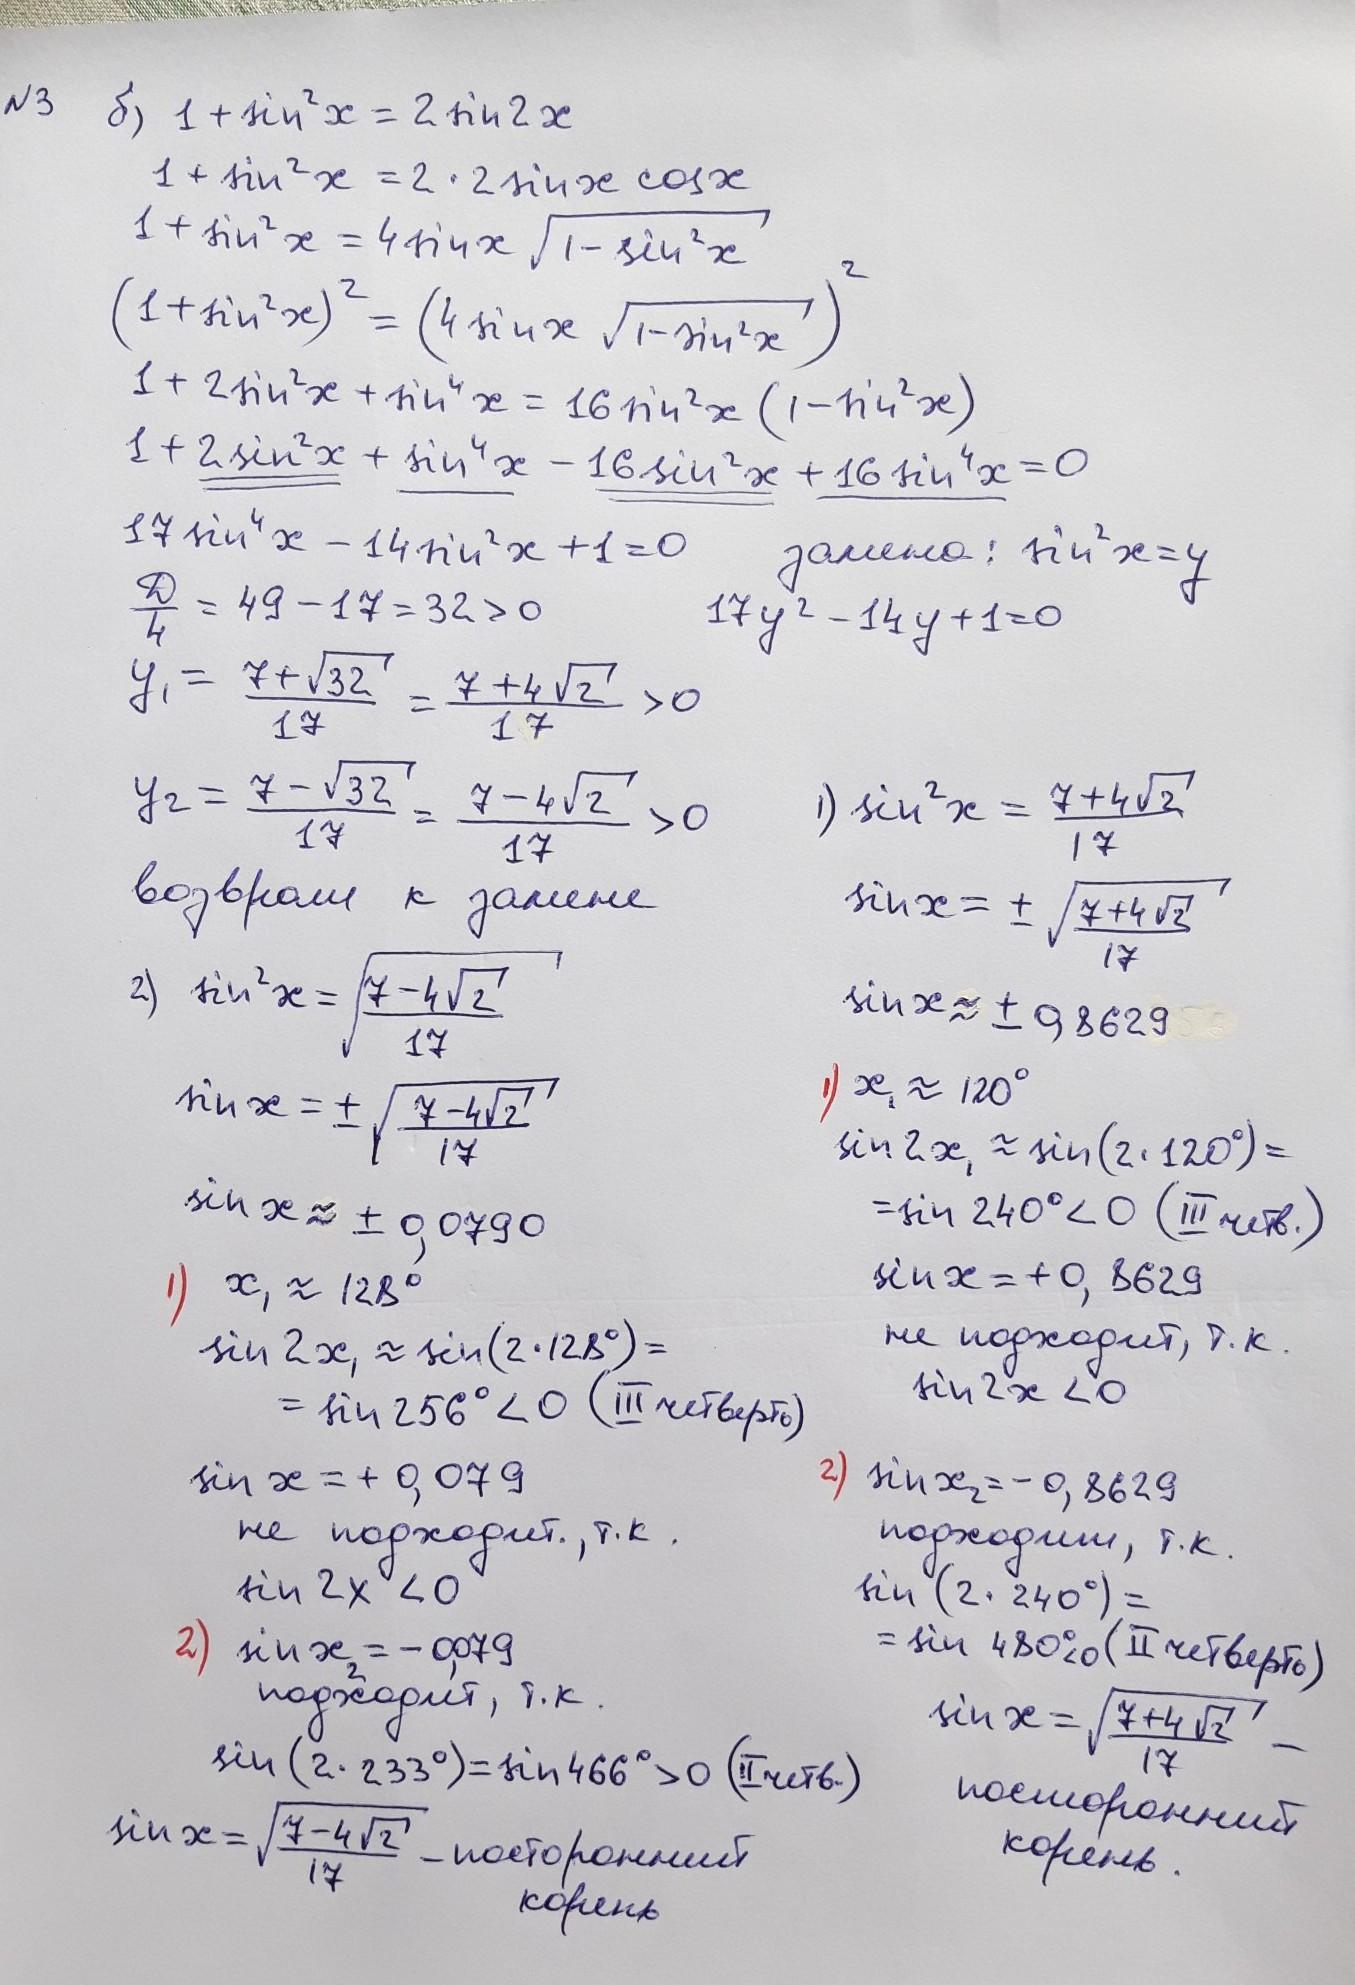 №3 б) 1 + sin²x = 2 sin2x
1 + sin²x = 2 · 2 sinx cosx
1 + sin²x = 4 sinx √(1 − sin²x)
(1 + sin²x)² = (4 sinx √(1−sin²x))²
1 + 2sin²x + sin⁴x = 16 sin²x (1−sin²x)
1 + 2sin²x + sin⁴x − 16sin²x + 16 sin⁴x = 0
17 sin⁴x − 14 sin²x + 1 = 0 замена: sin²x = y
D/4 = 49 − 17 = 32 > 0 17y² − 14y + 1 = 0
y₁ = (7+√32)/17 = (7+4√2)/17 > 0
y₂ = (7−√32)/17 = (7−4√2)/17 > 0
возврат к замене
1) sin²x = (7+4√2)/17
sinx = ± √((7+4√2)/17)
sinx ≈ ± 0,8629
1) x₁ ≈ 120°
sin 2x₁ ≈ sin(2·120°) =
= sin 240° < 0 (III четв.)
sinx = +0,8629
не подходит, т.к.
sin2x < 0
2) sinx₂ = −0,8629
подходит, т.к.
sin (2·240°) =
= sin 480°<0 (II четверть)
sinx = √((7+4√2)/17) –
посторонний
корень.
2) sin²x = √((7−4√2)/17)
sinx = ± √((7−4√2)/17)
sinx ≈ ± 0,0790
1) x₁ ≈ 128°
sin 2x₁ ≈ sin(2·128°) =
= sin 256° < 0 (III четверть)
sinx = + 0,079
не подходит., т.к.
sin 2x < 0
2) sinx₂ = −0,079
подходит, т.к.
sin (2·233°) = sin 466° > 0 (II четв.)
sinx = √((7−4√2)/17) – посторонний
корень